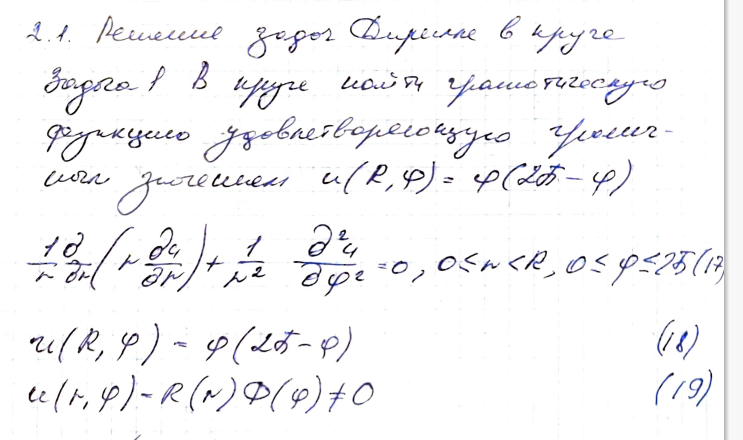 2.1. Решение задач Дирихле в круге
Задача 1 В круге найти гармоническую
функцию удовлетворяющую гранич-
ным значениям u(R,φ) = φ(2π-φ)
1/r ∂/∂r (r ∂u/∂r) + 1/r² ∂²u/∂φ² = 0, 0≤r<R, 0≤φ≤2π (17)
u(R,φ) = φ(2π-φ) (18)
u(r,φ) = R(r)Φ(φ) ≠ 0 (19)